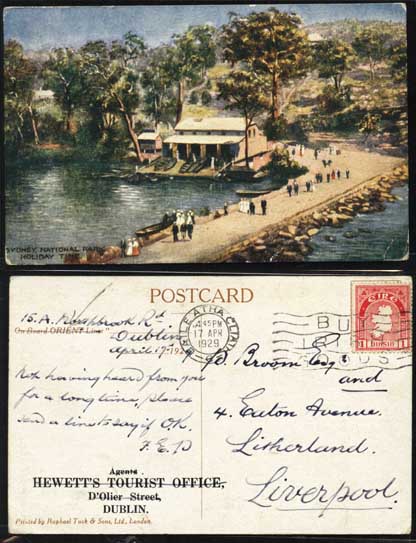 SYDNEY, NATIONAL PARK,
HOLIDAY TIME.
POSTCARD
15.A. Rd.
On Board ORIENT Line
Dublin
April 17 192
Not having heard from you
for a long time, please
send a line to say if OK.
F.E.D
Agents.
HEWETT'S TOURIST OFFICE,
D'Olier Street,
DUBLIN.
Printed by Raphael Tuck & Sons, Ltd., London.
BAILE ATHA CLIATH
45PM
17 APR
1929
BUY
IRISH
GOODS
ÉIRE
1 1
Broom Esq
and
4. Eaton Avenue.
Litherland.
Liverpool.